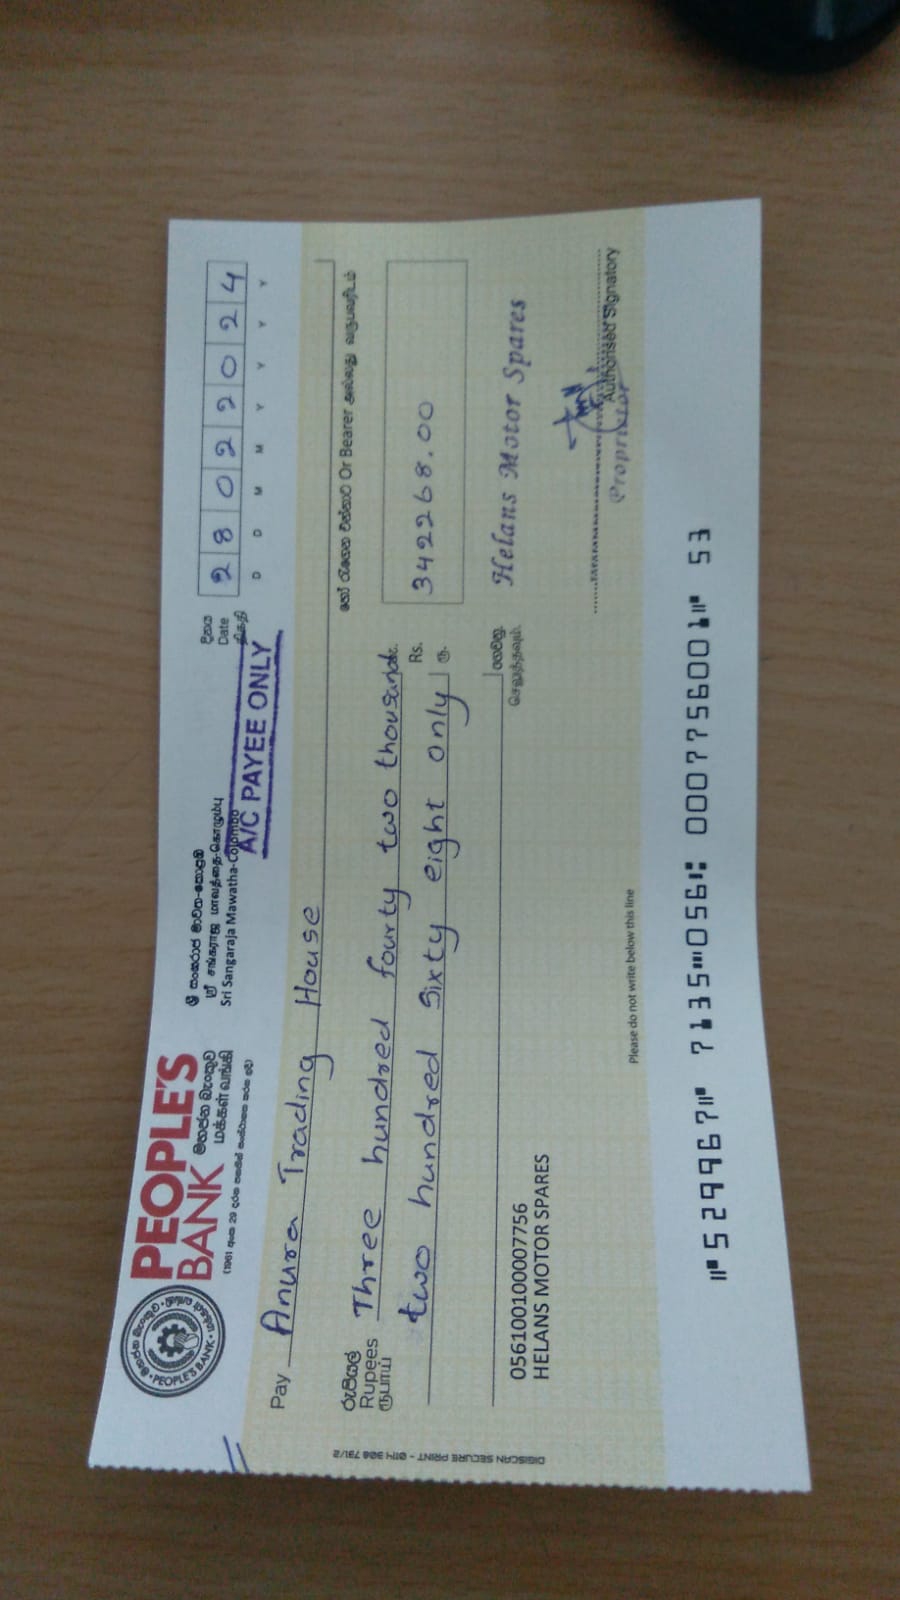 PEOPLE'S
BANK මහජන බැංකුව
மக்கள் வங்கி
ශ්‍රී සංඝරාජ මාවත-කොළඹ
ஸ்ரீ சங்கராஜ மாவத்தை-கொழும்பு
Sri Sangaraja Mawatha-Colombo
A/C PAYEE ONLY
දිනය
Date
திகதி
2 8 0 2 2 0 2 4
D D M M Y Y Y Y
PEOPLE'S BANK
Pay Anura Trading House
හෝ රැගෙන එන්නාට Or Bearer அல்லது வருபவரிடம்
රුපියල්
Rupees
ரூபாய்
Three hundred fourty two thousand
two hundred sixty eight only
Rs.
ரூ.
342268.00
ගෙවනු
செலுத்தவும்
Helans Motor Spares
056100100007756
HELANS MOTOR SPARES
Proprietor
Authorised Signatory
Please do not write below this line
DIGISCAN SECURE PRINT - 0114 906 791/2
⑈529967⑈ 7135⑉056⑆ 0007756001⑈ 53